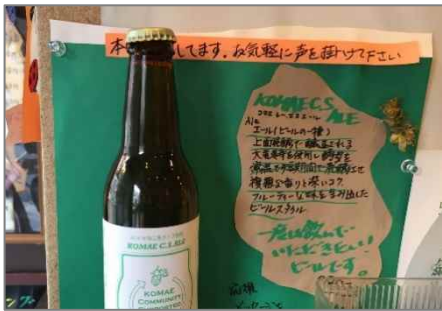 本 してます。お気軽に声を掛けて下さい
KOMAE C.S.
ALE
Ale
エール(ビールの一種)
上面発酵で醸造される
大麦麦芽を使用し酵母を
常温で短期間で発酵させ
複雑な香りと深いコク
フルーティーな味を生み出した
ビールスタイル
一度は飲んで
いただきたい
ビールです。
応援
メッセージを
KOMAE C.S.ALE
KOMAE
COMMUNITY
SUPPORTED